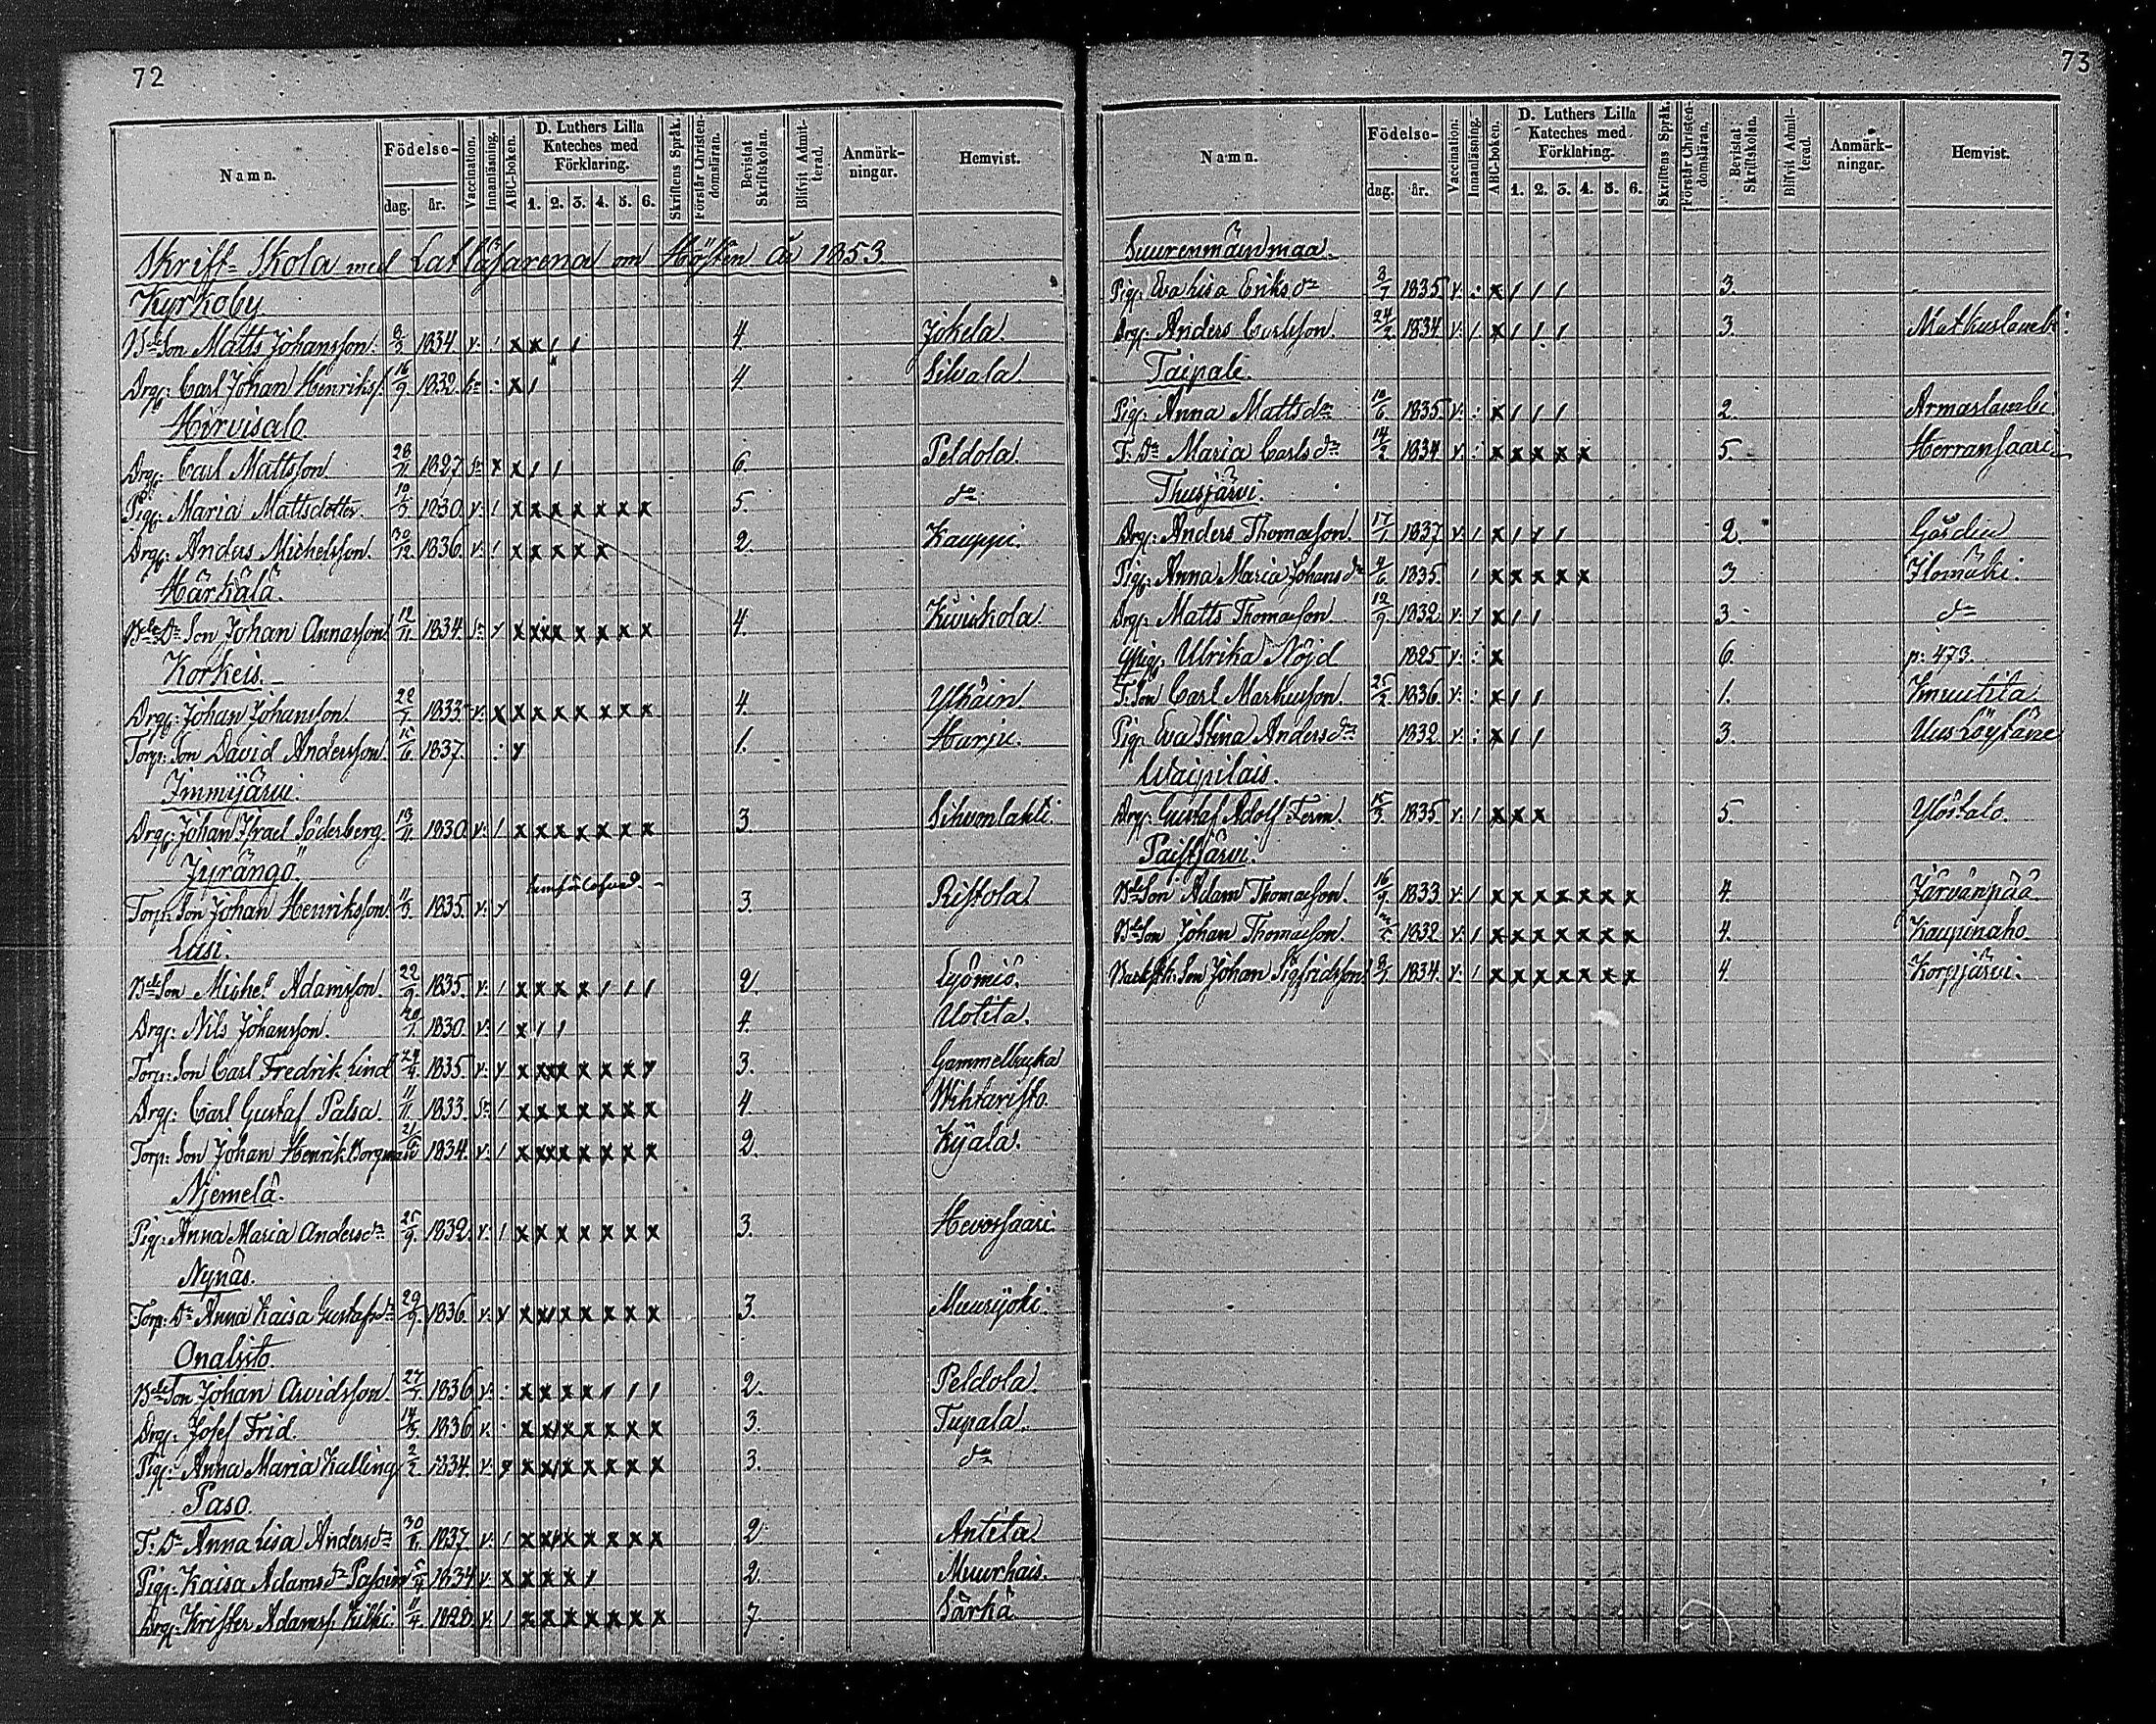 72
Namn. Födelse- dag. år. Vaccination. Innanläsning. ABC-boken. D. Luthers Lilla Kateches med Förklaring. 1. 2. 3. 4. 5. 6. Skriftens Språk. Förstår Christendomsläran. Bevistat Skriftskolan. Blifvit Admitterad. Anmärkningar. Hemvist.
Skrift-Skola med Latläsarena om Hösten år 1853.
Kyrkoby
Bde Son Matts Johansson. 8/3 1834. v. / x x / / 4. Jokela.
Drg: Carl Johan Henrikss. 16/9 1832. : x / 4 Silvala.
Hirvisalo
Drg: Carl Mattsson. 28/11 1827 x x / / 6. Peldola.
Pig: Maria Mattsdotter. 1830. v. / x x x x x x x 5. do
Drg: Anders Michelsson. 30/12 1836. v. / x x x x x 2. Kauppi.
Härkälä.
Son Johan Annasson 12/11 1834. x x x x x x x 4. Kiviskola.
Korkeis.
Drg: Johan Johansson. 1833. v. x x x x x x x x 4. Ylikäin.
Torp: Son David Andersson. 15/6 1837. : 1. Harju.
Immijärvi.
Drg: Johan Israel Söderberg. 13/11 1830. v. / x x x x x x x 3. Sihvonlahti.
Jyrängö.
Torp: Son Johan Henriksson. 11/3 1835. v. 3. Ristola.
Lusi.
Bde Son Michel Adamsson. 22/9 1835. v. / x x x x / / / 2. Lyömiö.
Drg: Nils Johansson. 1830. v. / x / / 4. Uotila.
Torp: Son Carl Fredrik Lind 24/4 1835. v. x x x x x x 3. Gammelbacka
Drg: Carl Gustaf Palsa. 11/11 1833. / x x x x x x x 4. Wihtaristo.
Torp: Son Johan Henrik Borgman 1834. v. / x x x x x x x 2. Kyjälä.
Njemelä.
Pig: Anna Maria Andersdr 25/9 1832. v. / x x x x x x x 3. Hevossaari.
Nynäs.
Torp: Dr Anna Kaisa Gustafsdr 29/9 1836. v. x x x x x x x 3. Muurijoki.
Onalisto.
Bde Son Johan Arvidsson. 27/7 1836 v. : x x x x / / / 2. Peldola.
Drg: Josef Frid. 14/3 1836 v. x x x x x x x 3. Tupala.
Pig: Anna Maria Kalling 2/2 1834. v. x x x x x x x 3. do
Paso.
T. Dr Anna Lisa Andersdr 1837. v. / x x x x x x x 2. Antila.
Pig: Kaisa Adamsdr Pasoin 5/4 1834 v. x x x x / 2. Muurhais.
Drg: Krister Adamss. Kilki. 11/4 1828. v. / x x x x x x x 7 Särkä
73
Namn. Födelse- dag. år. Vaccination. Innanläsning. ABC-boken. D. Luthers Lilla Kateches med Förklaring. 1. 2. 3. 4. 5. 6. Skriftens Språk. Förstår Christendomsläran. Bevistat Skriftskolan. Blifvit Admitterad. Anmärkningar. Hemvist.
Suurenmäinmaa.
Pig: Eva Lisa Eriksdr 3/7 1835. v. : x / / / 3.
Drg: Anders Carlsson. 24/2 1834 v. / x / / / 3. Matkuslambi.
Taipale.
Pig: Anna Mattsdr 1835. v. : x / / / 2. Armaslambi
T. Dr Maria Carlsdr 14/2 1834 v. : x x x x x 5. Herransaari
Thusjärvi.
Drg: Anders Thomasson. 17/1 1837 v. / x / / / 2. Gåsdien
Pig: Anna Maria Johansdr 1835. / x x x x x 3 Ilomäki.
Drg: Matts Thomasson. 19/9 1832. v. x / / 3 do
Ulrika Nöjd 1825 v. : x 6. p: 473.
T. Son Carl Markusson. 25/2 1836. v. : x / / 1. Knuutila
Pig: Eva Stina Andersdr 1832. v. : x / / 3. Uus Löytäne
Waipilais.
Drg: Gustaf Adolf Ferm. 15/3 1835 v. / x x x 5. Ylöstalo.
Paistjärvi.
Bde Son Adam Thomasson. 16/9 1833 v. / x x x x x x x 4. Järvänpää.
Bde Son Johan Thomasson. 1832 v. / x x x x x x x 4. Kaupinaho.
Son Johan Sigfridsson 1834. v. / x x x x x x x 4 Korpjärvi.